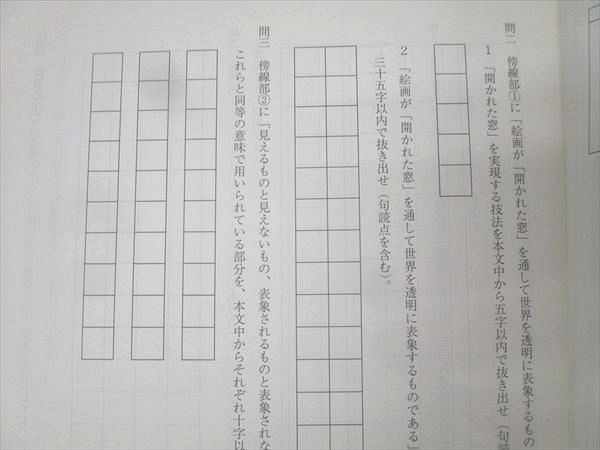 問二 傍線部①に「絵画が「開かれた窓」を通して世界を透明に表象するもの
1 「開かれた窓」を実現する技法を本文中から五字以内で抜き出せ（句読
2 「絵画が「開かれた窓」を通して世界を透明に表象するものである」
三十五字以内で抜き出せ（句読点を含む）。
問三 傍線部②に「見えるものと見えないもの、表象されるものと表象されな
これらと同等の意味で用いられている部分を、本文中からそれぞれ十字以